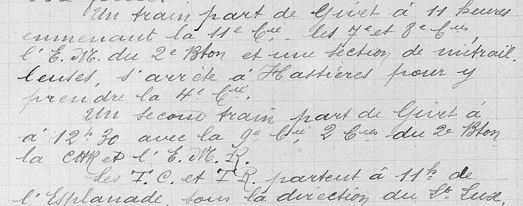 Un train part de Givet à 11 heures
emmenant la 11e Cie les 7e et 8e Cies
l'E. M. du 2e Bton et une section de mitrail.
leuses, s'arrête à Hastières pour y
prendre la 4e Cie.
Un second train part de Givet à
à 12h30 avec la 9e Cie 2 Cies du 2e Bton
la CHR et l'E. M. R.
Les T. C. et T R partent à 11h de
l'Esplanade, sous la direction du